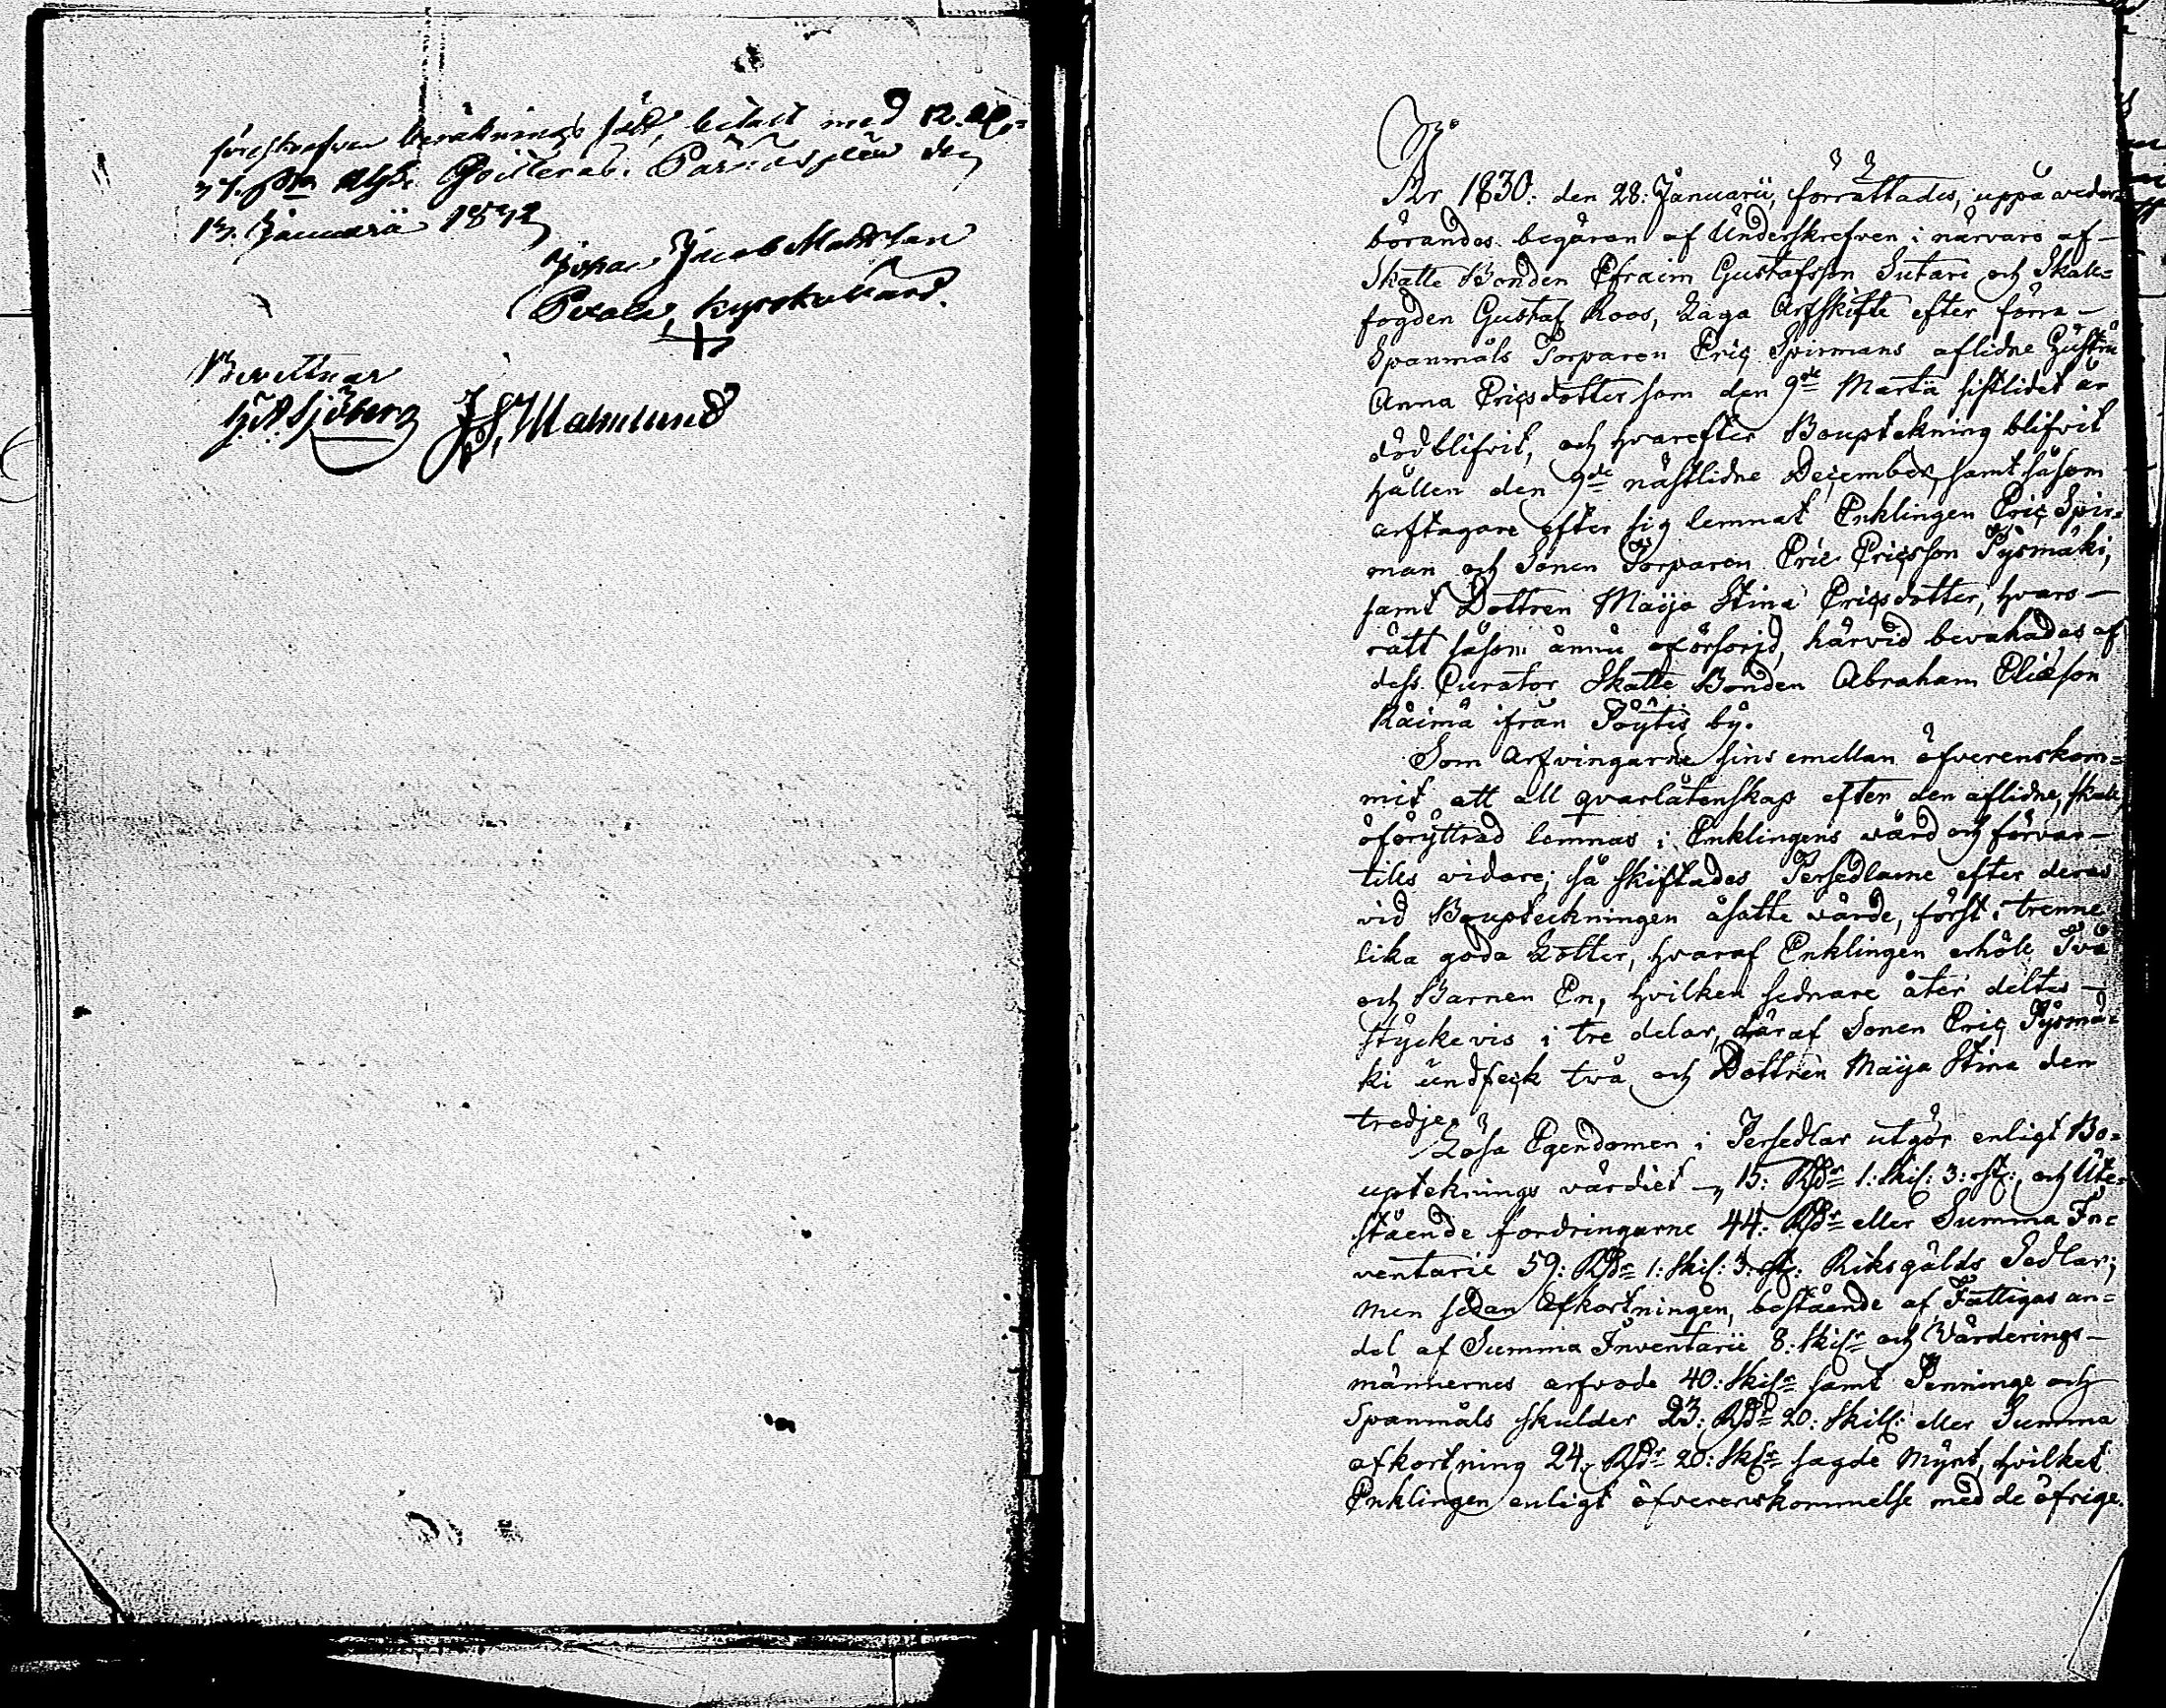 föreskrefven beräknings sätt, betalt med 12. Rb.
37. Qvitteras. den
13. Januarii 1832
Johan Jacob Mattsson
kyrkovärd.
Bevittnar
Sjöberg J. S. Malmlund
År 1830: den 28: Januarii, förrättades, uppå weder-
börandes begäran af Underskrefven i närvaro af
Skatte Bonden Efraim Gustafsson Sutari och Skalle-
fogden Gustaf Roos, Laga Arfskifte efter förra
Spanmåls Torparen Eriç Spirmans aflidne Hustru
Anna Eriçsdotter som den 9de Martii sistlidet år
död blifvit, och hvarefter Bouptekning blifvit
hållen den 9de nästlidne December, samt såsom
arftagare efter sig lemnat Enklingen Eriç Spir-
man och Sonen Torparen Eric Eriçsson Pysmäki,
samt Dottren Maija Stina Eriçsdotter, hvars
rätt såsom ännu oförsörjd, härvid bevakades af
dess Curator Skatte Bonden Abraham Eliæson
Räimä ifrån Pöytis by.
Som Arfvingarne sins emellan öfverenskom-
mit att all qvarlåtenskap efter den aflidne, skall
oföryttrad lemnas i Enklingens wård och förvar
tills vidare; så skiftades Persedlarne efter deras
vid Bouptekningen åsatte wärde, först i trenne
lika goda Lotter, hvaraf Enklingen erhöll Två
och Barnen En, hvilken sednare åter deltes
styckevis i tre delar, däraf Sonen Eriç Pysmä-
ki undfeçk två och Dottren Maija Stina den
tredje.
Lösa Egendomen i Persedlar utgör enligt Bo-
upteknings värdiet 15: Rdr 1: Skil: 3: rst: och Ute-
stående fordringarne 44: Rdr eller Summa In-
ventarie 59: Rdr 1: Skil: 3: rst: Riksgälds Sedlar;
men sedan Afkortningen, bestående af Fattigas an-
del af Summa Inventarii 8: Skilr och Värderings-
männernes arfvode 40: Skilr samt Penninge och
Spanmåls skulder 23: Rdr 20: Skill: eller Summa
afkortning 24: Rdr 20: Sklr sagde Mynt, hvilket
Enklingen enligt öfverenskommelse med de öfrige